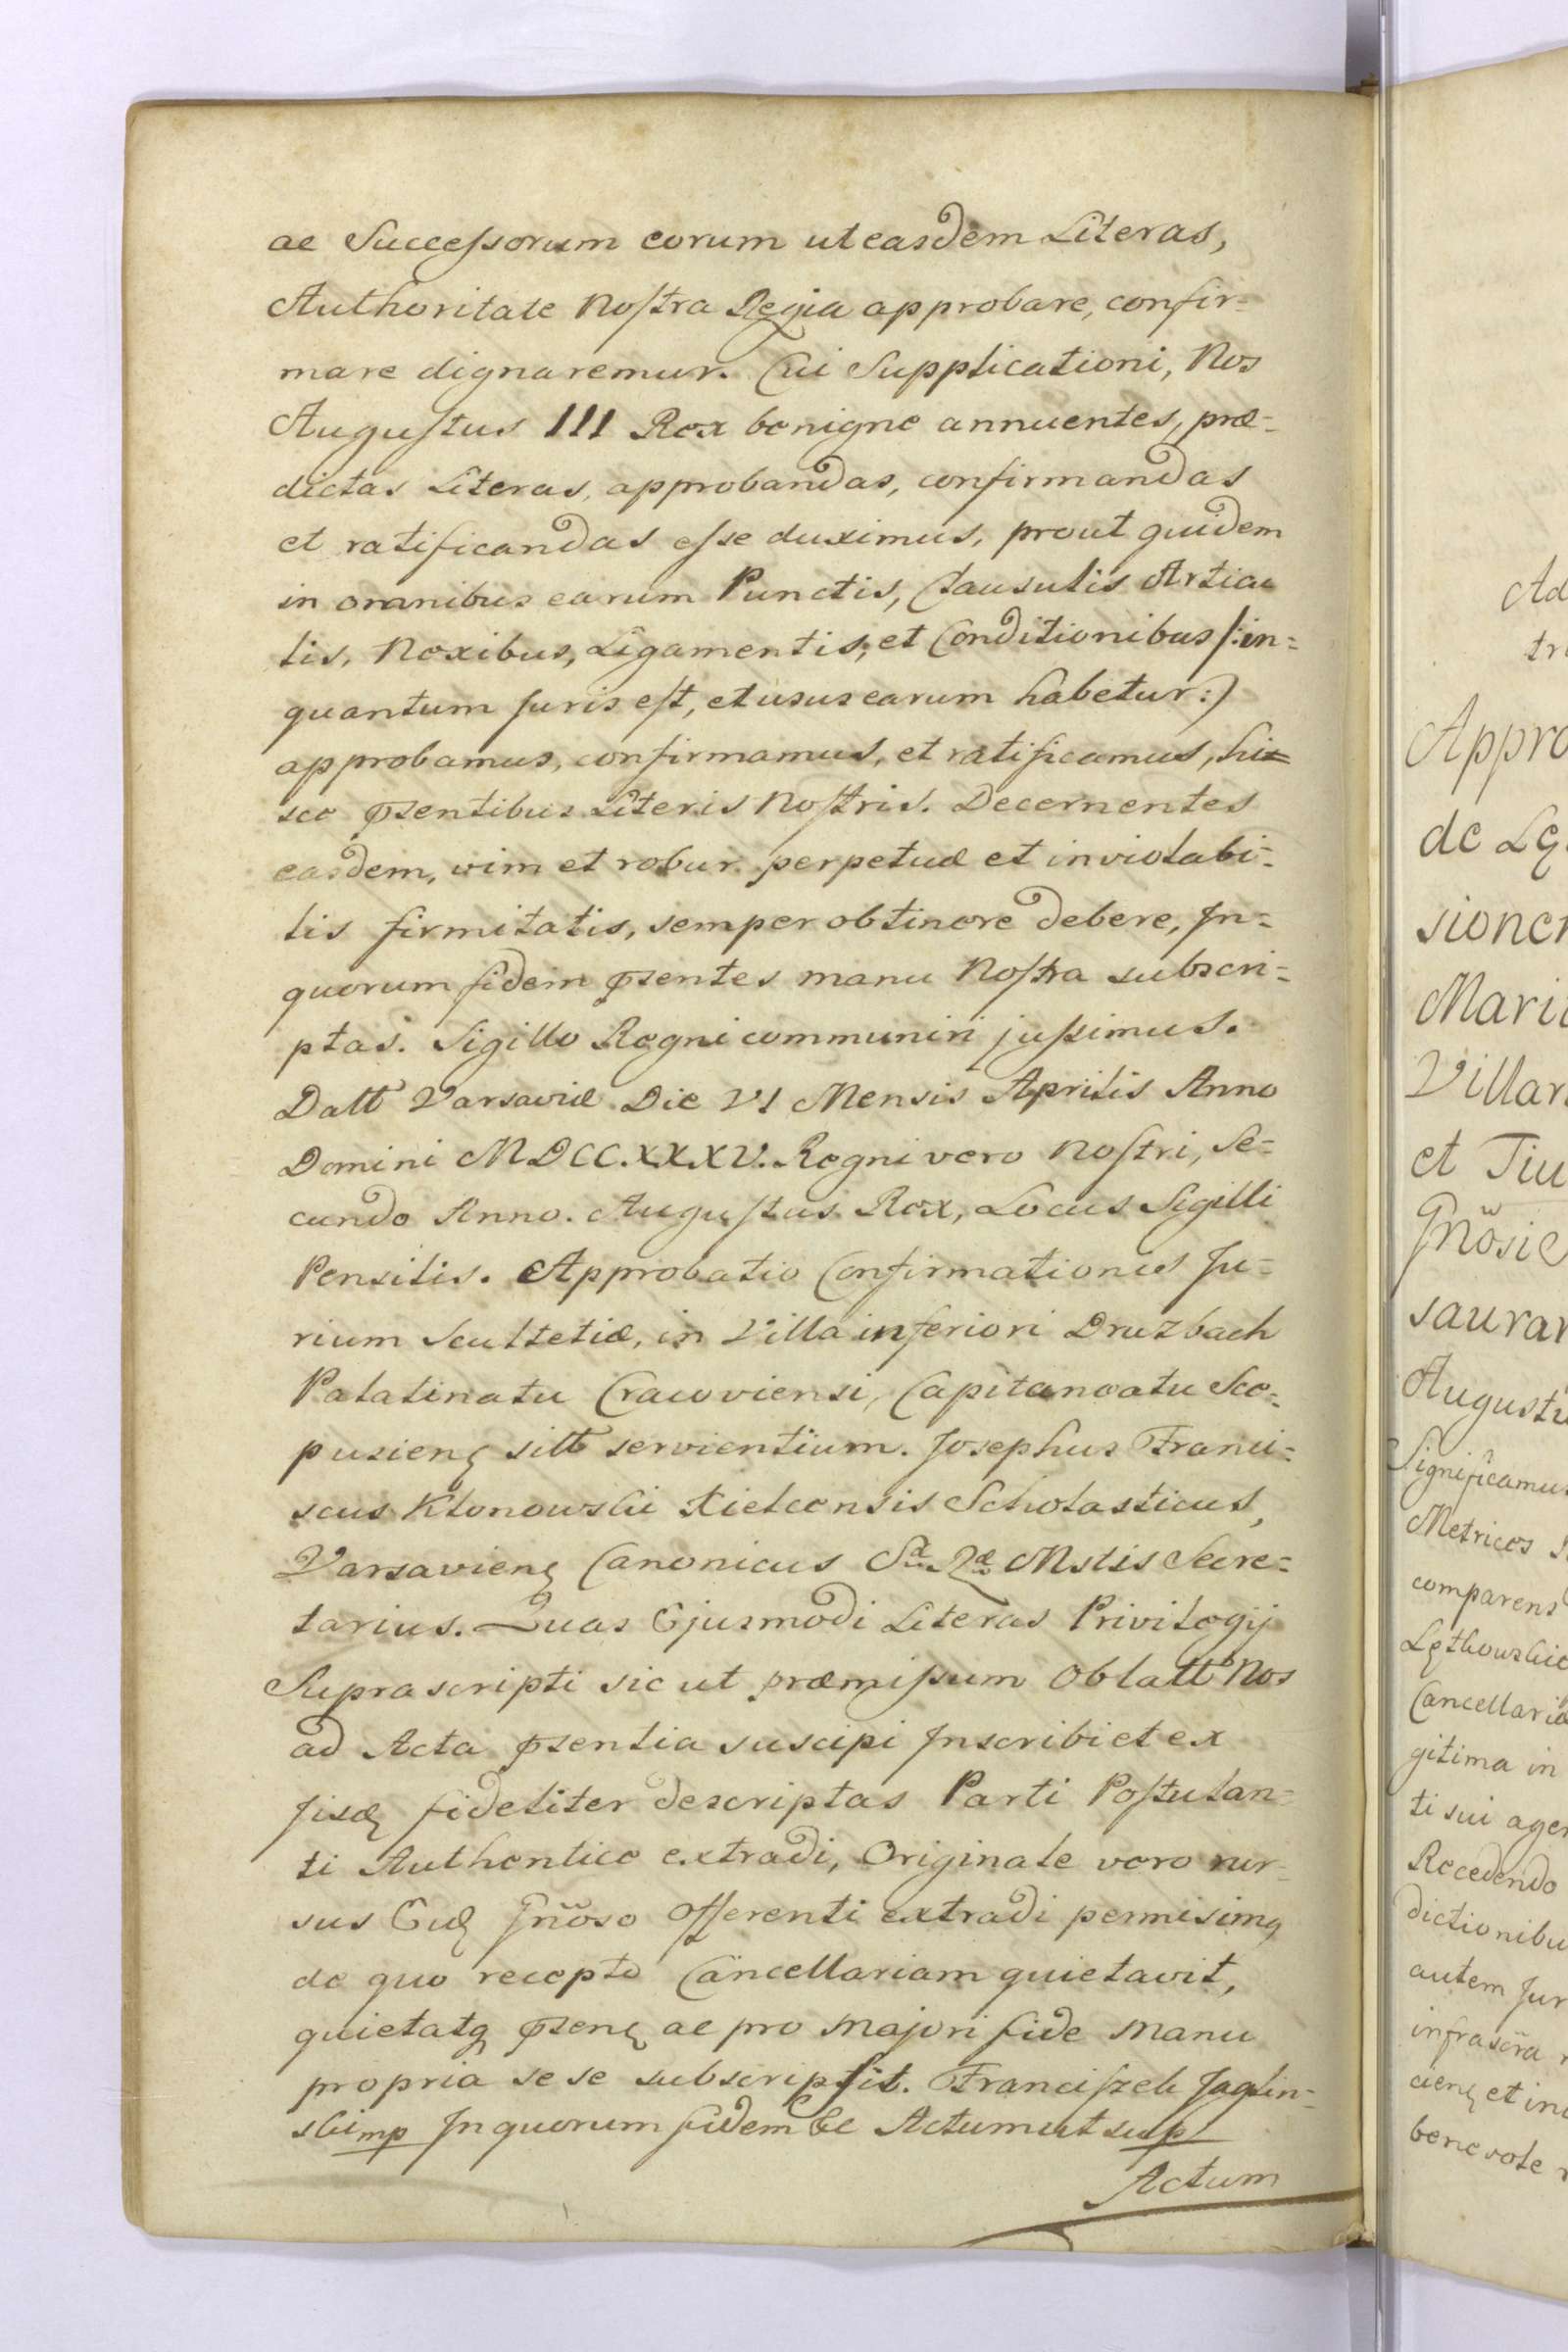 ac Successorum eorum ut easdem Literas,
Authoritate Nostra Regia approbare, confir-
mare dignaremur. Cui Supplicationi, Nos
Augustus III Rex benigne annuentes, præ-
dictas Literas, approbandas, confirmandas
et ratificandas esse duximus, prout quidem
in omnibus earum Punctis, Clausulis Articu
lis, Nexibus, Ligamentis, et Conditionibus /:in-
quantum Juris est, et usus earum habetur:)
approbamus, confirmamus, et ratificamus, hi-
sce pñsentibus Literis Nostris. Decernentes
easdem, vim et robur perpetuæ et inviolabi-
lis firmitatis, semper obtinere debere, In-
quorum fidem pñsentes manu Nostra subscri-
ptas. Sigillo Regni communiri jussimus.
Datt Varsaviæ Die VI Mensis Aprilis Anno
Domini MDCC.XXXV. Regni vero Nostri, Se-
cundo Anno. Augustus Rex, Locus Sigilli
Pensilis. Approbatio Confirmationis Ju-
rium Scultetiæ, in Villa inferiori Druzbach
Palatinatu Cracoviensi, Capitaneatu Sce-
pusienę sitt servientium. Josephus Franci-
scus Klonowski Kielcensis Scholasticus,
Varsavienę Canonicus Sæ Ræ Mstis Secre-
tarius. Quas Ejusmodi Literas Privilegij
Suprascripti sic ut præmissum Oblatt Nos
ad Acta pñsentia suscipi Inscribi et ex
Jisdę fideliter descriptas Parti Postulan-
ti Authentice extradi, Originale vero rur-
sus Eidę Gñoso Offerenti extradi permisimq
de quo recepto Cancellariam quietavit,
quietatq pñsenę ac pro Majori fide Manu
propria sese subscripsit. Franciszek Jaglin-
ski mp In quorum fidem &c Actum ut sup
Actum
Ad
Appro
de Lę
sionem
Villar
et Tiu
Gñosie
saurar
Augustu
Significamus
Metrices
comparens
Lęthowskie
gitima in
ti sui agen
Recedendo
dictionibu
autem Jur
infrascra
cienę et in
benevole